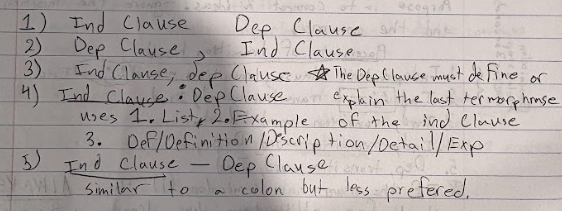 1) Ind Clause Dep Clause
2) Dep Clause, Ind Clause
3) Ind Clause, dep Clause ☆ The Dep Clause must define or
4) Ind Clause : Dep Clause explain the last term or phrase
uses 1. List, 2. Example of the ind Clause
3. Def/Definition/Description/Detail/Exp
5) Ind Clause — Dep Clause
Similar to a colon but less prefered.